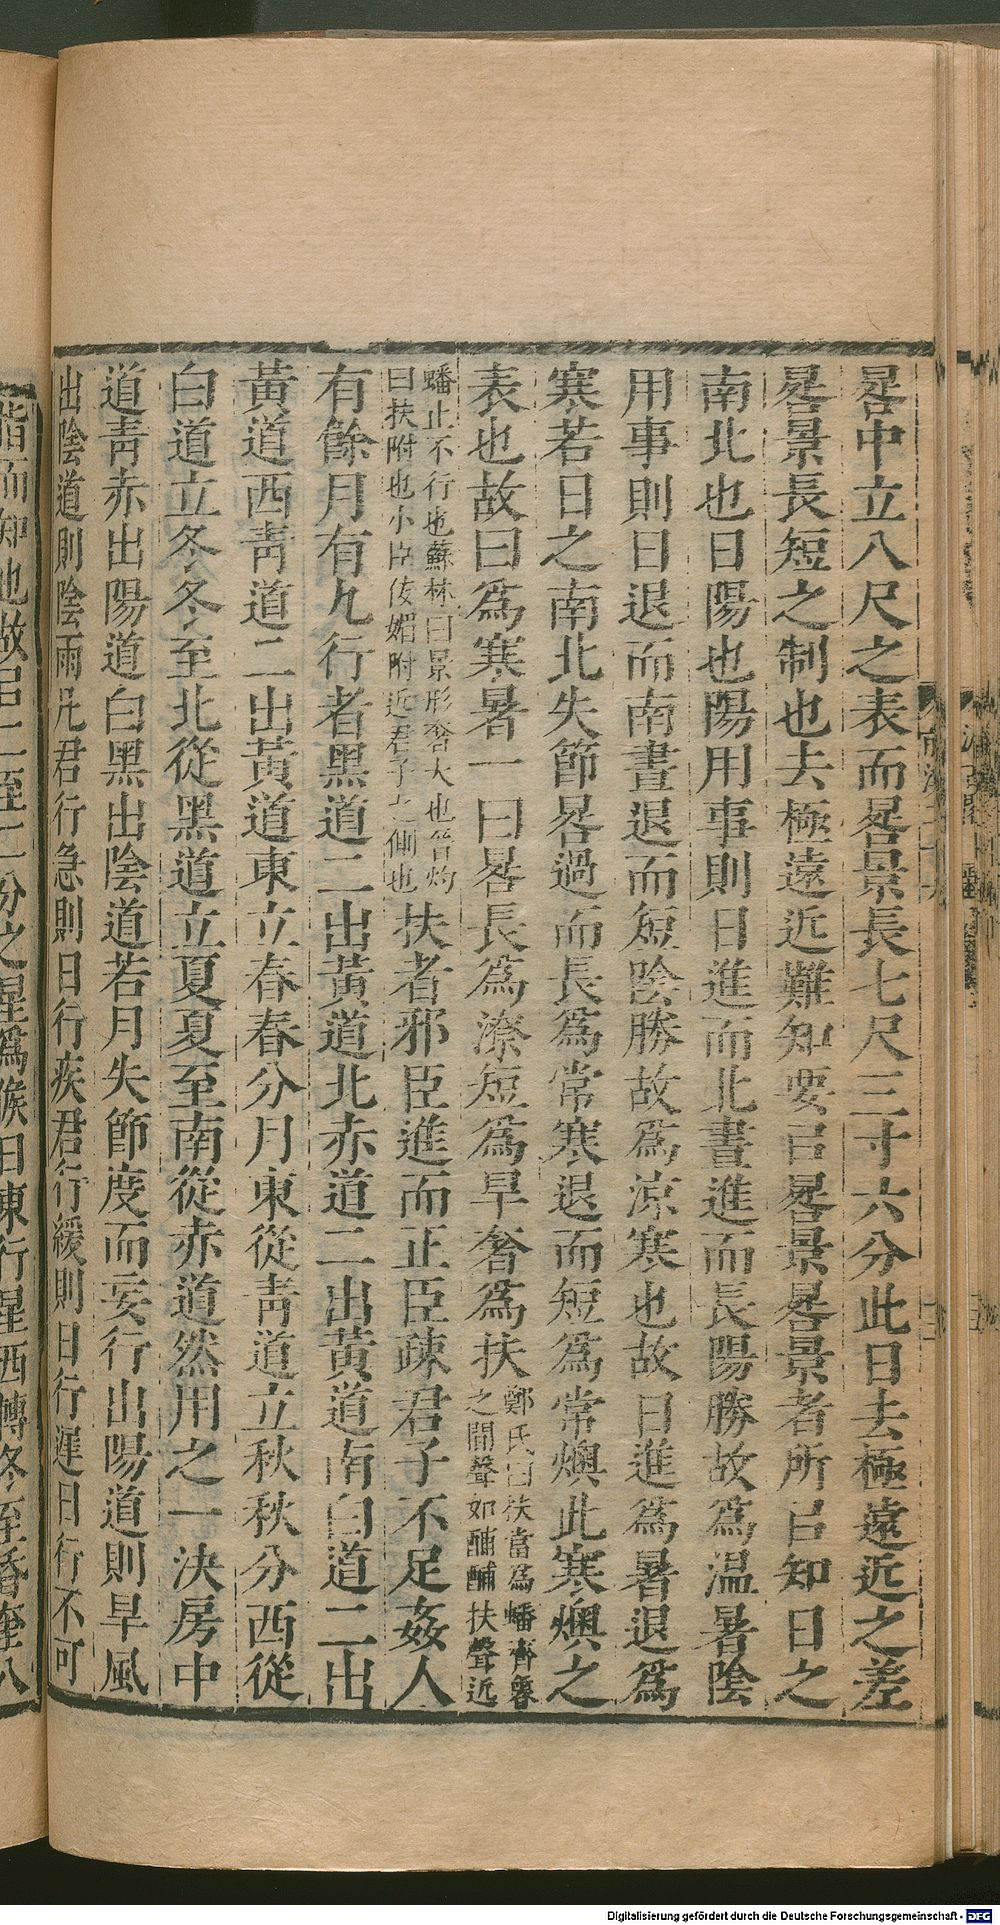 晷中立八尺之表而晷景長七尺三寸六分此日去極遠近之差
晷景長短之制也去極遠近難知要㠯晷景晷景者所㠯知日之
南北也日陽也陽用事則日進而北晝進而長陽勝故爲温暑陰
用事則日退而南晝退而短陰勝故爲涼寒也故日進爲暑退爲
寒若日之南北失節晷過而長爲常寒退而短爲常燠此寒燠之
表也故曰爲寒暑一曰晷長爲潦短爲旱奢爲扶鄭氏曰扶當爲蟠齊魯
之間聲如酺酺扶聲近
蟠止不行也蘇林曰景形奢大也晉灼
曰扶附也小臣佞媚附近君子之側也扶者邪臣進而正臣疎君子不足姦人
有餘月有九行者黑道二出黃道北赤道二出黃道南白道二出
黃道西靑道二出黃道東立春春分月東從靑道立秋秋分西從
白道立冬冬至北從黑道立夏夏至南從赤道然用之一決房中
道靑赤出陽道白黑出陰道若月失節度而妄行出陽道則旱風
出陰道則陰雨凡君行急則日行疾君行緩則日行遲日行不可
指而知也故㠯二至二分之星爲候日東行星西轉冬至昏奎八
Digitalisierung gefördert durch die Deutsche Forschungsgemeinschaft - DFG